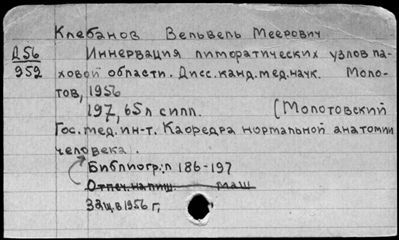 Клебанов Вельвель Меерович
Д56
952
Иннервация лимфатических узлов па-
ховой области. Дисс. канд. мед. наук. Моло-
тов, 1956
197, 65л илл. (Молотовский
Гос. мед. ин-т. Кафедра нормальной анатомии
человека).
Библиогр: л 186-197
Отпеч. на пиш. маш
Защ. в 1956 г,